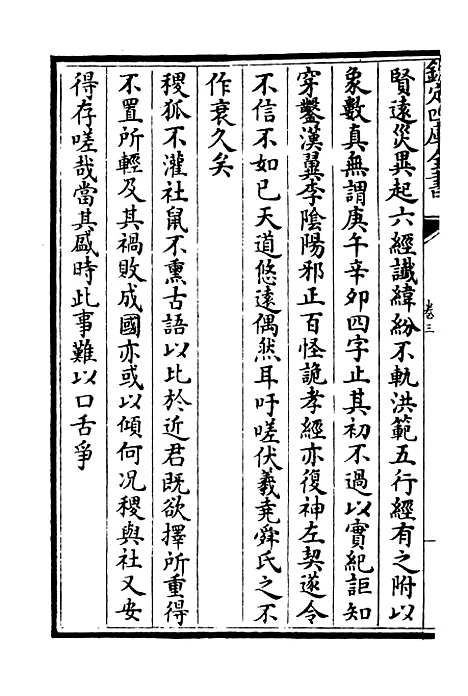 欽定四庫全書
卷三
賢遠災異起六經讖緯紛不軌洪範五行經有之附以
象數真無謂庚午辛卯四字止其初不過以實紀詎知
穿鑿漢翼李陰陽邪正百怪詭孝經亦復神左契遂令
不信不如已天道悠遠偶然耳吁嗟伏羲堯舜氏之不
作衰久矣
稷狐不灌社鼠不熏古語以比於近君既欲擇所重得
不置所輕及其禍敗成國亦或以傾何况稷與社又安
得存嗟哉當其盛時此事難以口舌爭